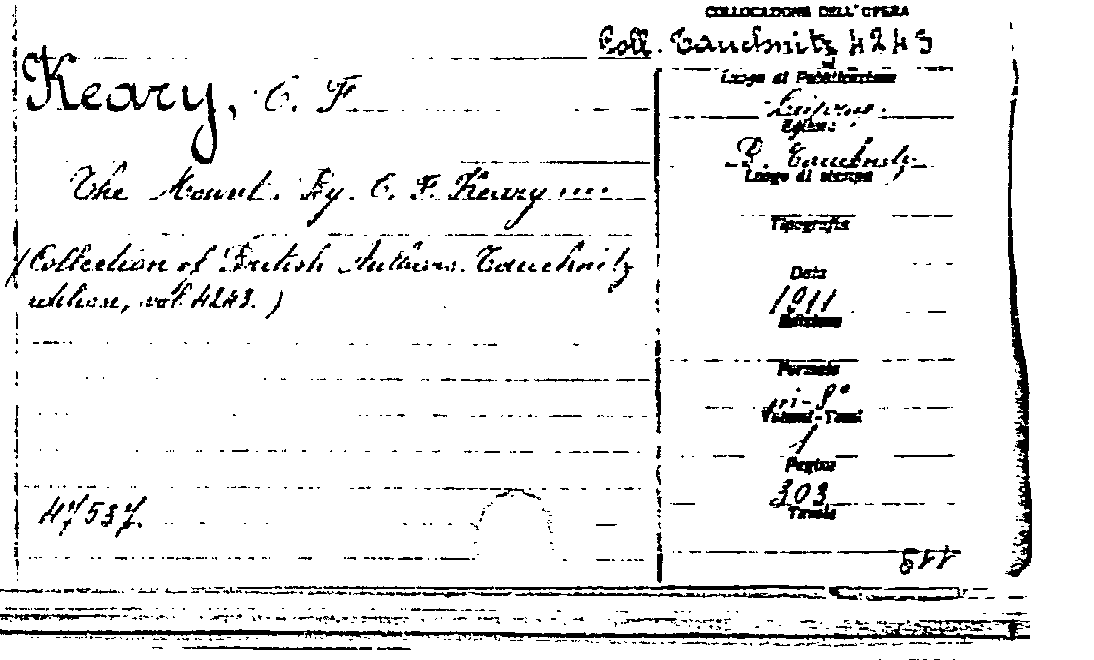 COLLOCAZIONE DELL'OPERA
Coll. Tauchnitz 4243
Keary, C. F.
The Mount. By. C. F. Keary ....
(Collection of British Authors. Tauchnitz
edition, vol. 4243.)
47537.
Luogo di Pubblicazione
Leipzig.
Editore
B. Tauchnitz
Luogo di stampa
Tipografia
Data
1911
Edizione
Formato
in-8°
Volumi-Tomi
1
Pagine
303
Tavole